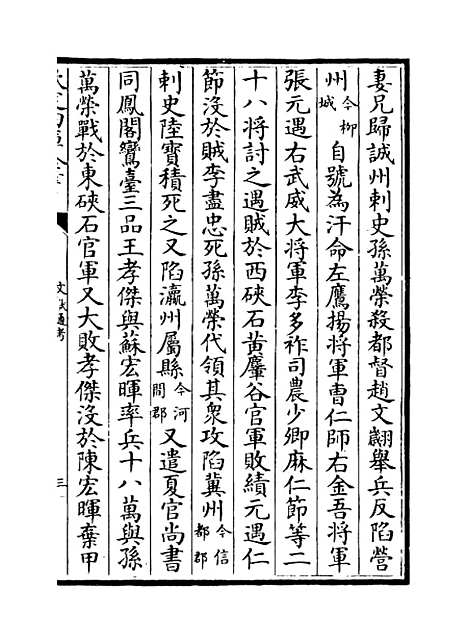 妻兄歸誠州刺史孫萬榮殺都督趙文翽舉兵反陷營
州今柳城自號為汗命左鷹揚將軍曹仁師右金吾將軍
張元遇右武威大將軍李多祚司農少卿麻仁節等二
十八將討之遇賊於西硤石黄麞谷官軍敗績元遇仁
節沒於賊李盡忠死孫萬榮代領其衆攻陷冀州今信都郡
刺史陸寶積死之又陷瀛州屬縣今河間郡又遣夏官尚書
同鳳閣鸞臺三品王孝傑與蘇宏暉率兵十八萬與孫
萬榮戰於東硤石官軍又大敗孝傑沒於陳宏暉棄甲
文獻通考
三